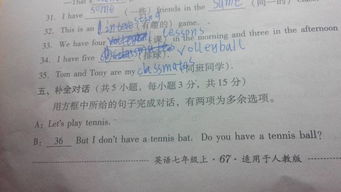 31. I have some (一些) friends in the same (同一的)
32. This is an interesting (有趣的) game.
33. We have four lessons (课) in the morning and three in the afternoon
34. I have five volleyball (排球).
35. Tom and Tony are my classmates (同班同学).
五、补全对话 (共 5 小题, 每小题 3 分, 共 15 分)
用方框中所给的句子完成对话, 有两项为多余选项。
A: Let's play tennis.
B: 36 But I don't have a tennis bat. Do you have a tennis ball?
英语七年级上·67·适用于人教版